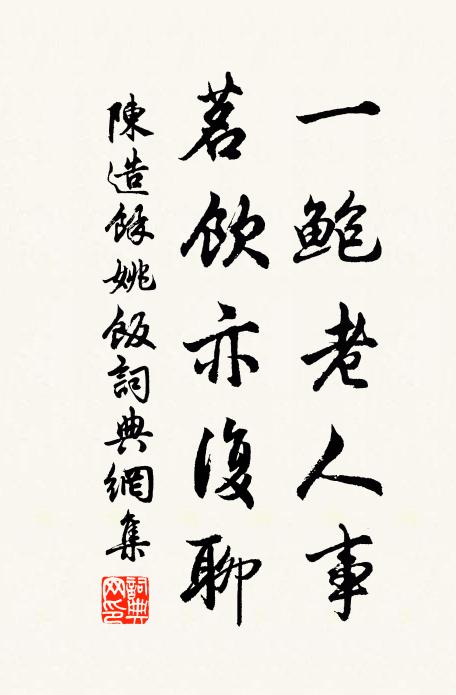 一鲍老人事
茗飲亦復聊
陳造餘姚飯詞典網集
詞典網印